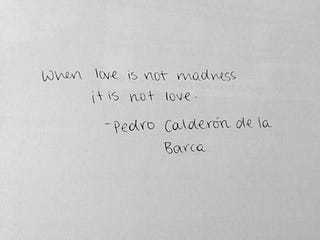 When love is not madness
it is not love.
-Pedro Calderón de la
Barca